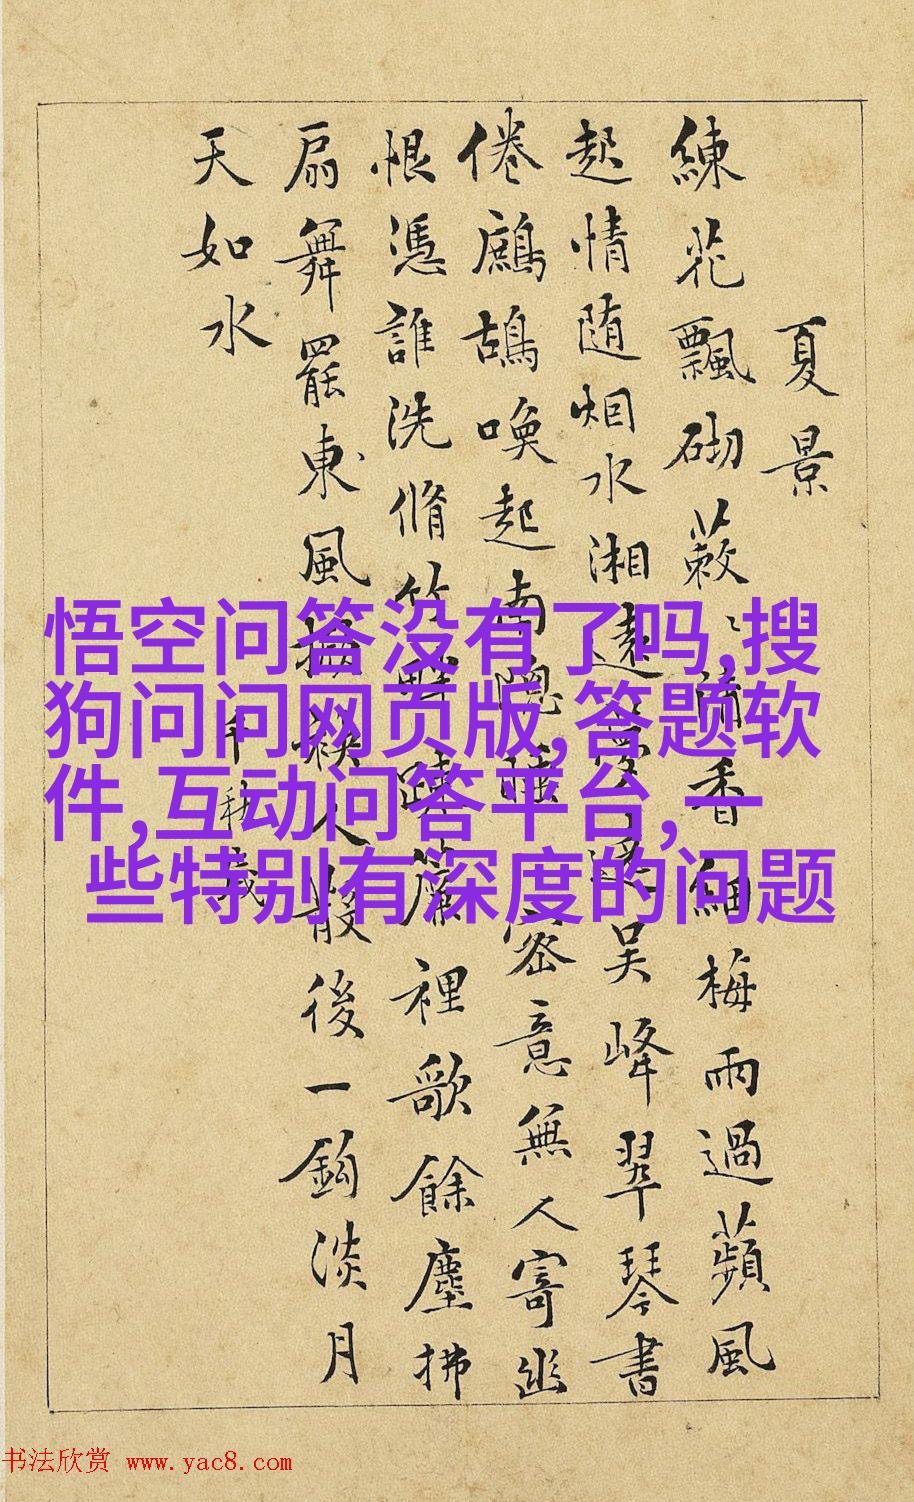 夏景
練花飄砌蔌〻清香細梅雨過蘋風
起情随烟水湘遠夢遶吳峰翠琴書
倦鷓鴣喚起南睡密意無人寄幽
恨憑誰洗脩竹畔疎簾裡歌餘塵拂
扇舞罷東風掀袂人散後一鈎淡月
天如水
千秋歲
悟空问答没有了吗,搜
狗问问网页版,答题软
件,互动问答平台,一
些特别有深度的问题
书法欣赏 www.yac8.com